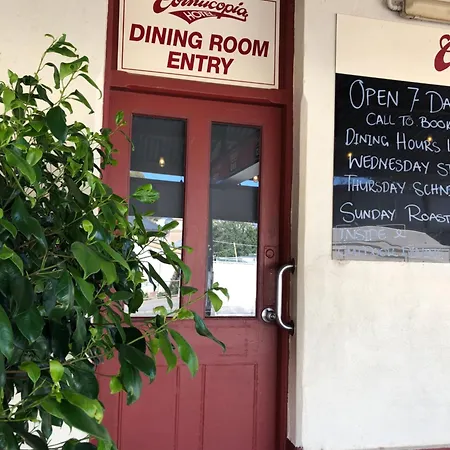 Cornucopia
HOTEL
DINING ROOM
ENTRY
OPEN 7 DA
CALL TO BOOK
DINING HOURS
WEDNESDAY ST
THURSDAY SCHN
SUNDAY ROAST
INSIDE &